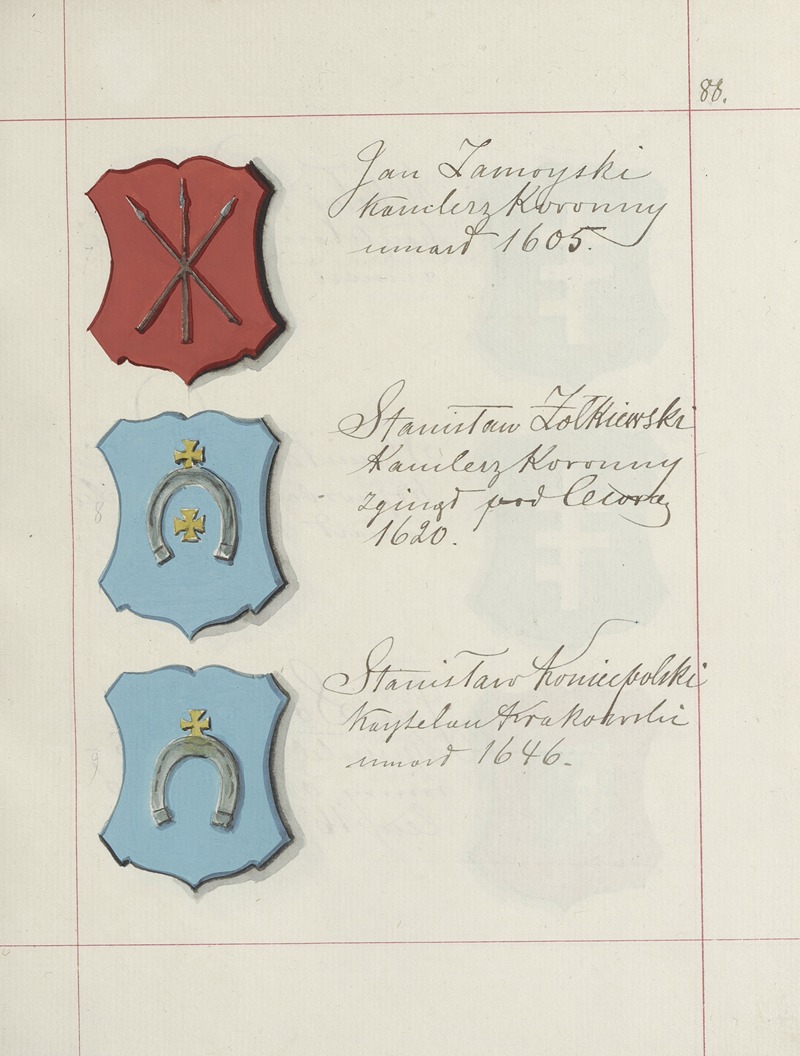 88.
Jan Zamoyski
Kanclerz Koronny
umarł 1605.
Stanisław Żołkiewski
Kanclerz Koronny
zginął pod Cecorą
1620.
Stanisław Koniecpolski
Kasztelan Krakowski
umarł 1646.